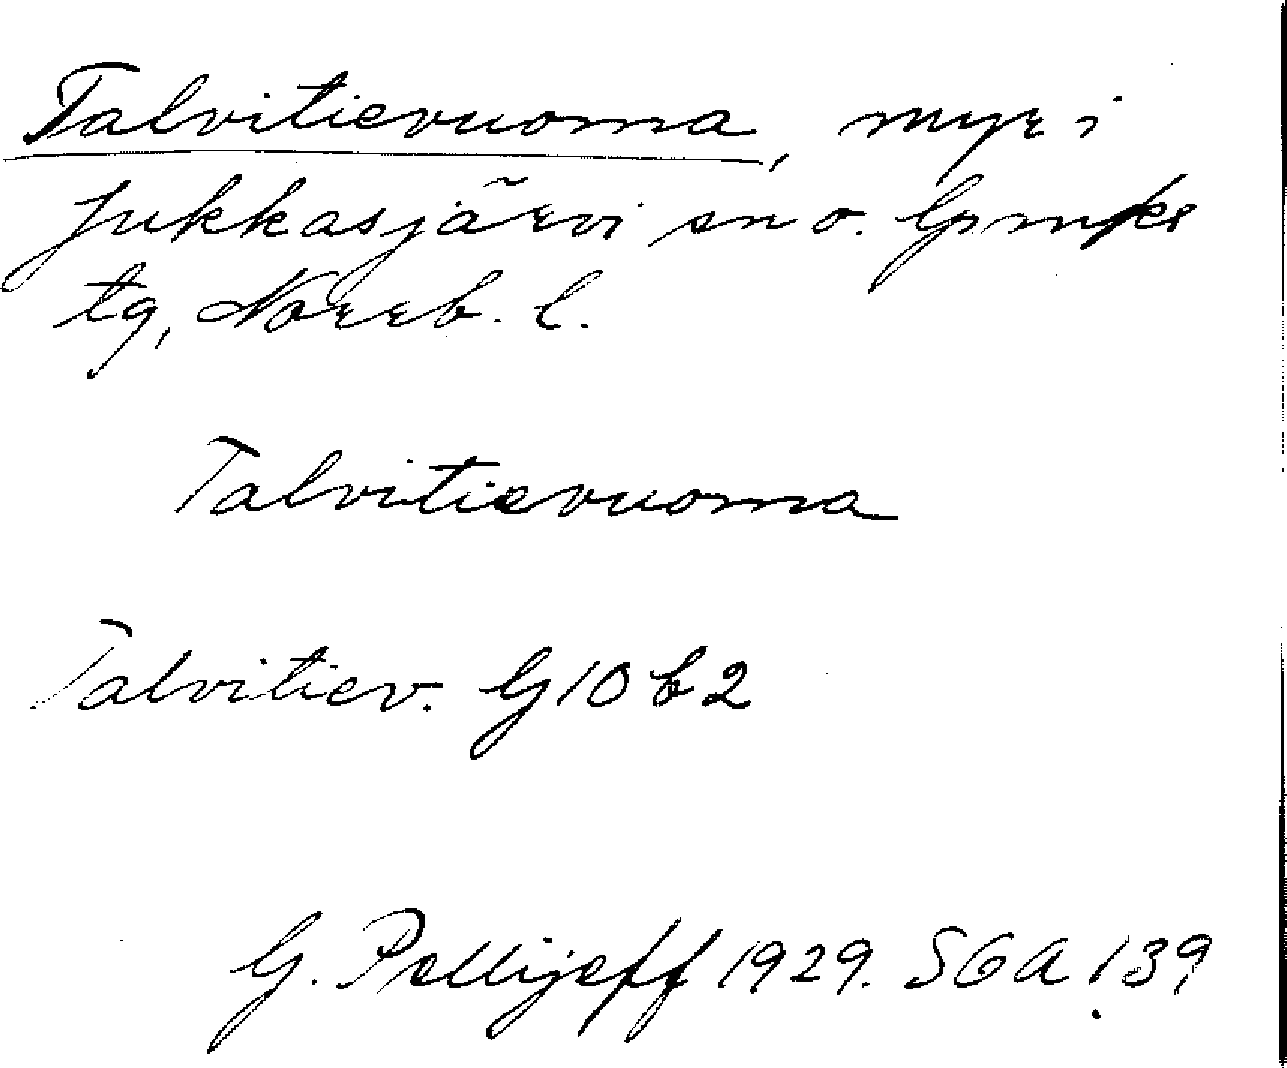 Talvitievuoma, myr i
Jukkasjärvi sn o. lpmks
tg, Norrb. l.
Talvitievuoma
Talvitiev. G 10 b 2
G. Pellijeff 1929. SGA 139